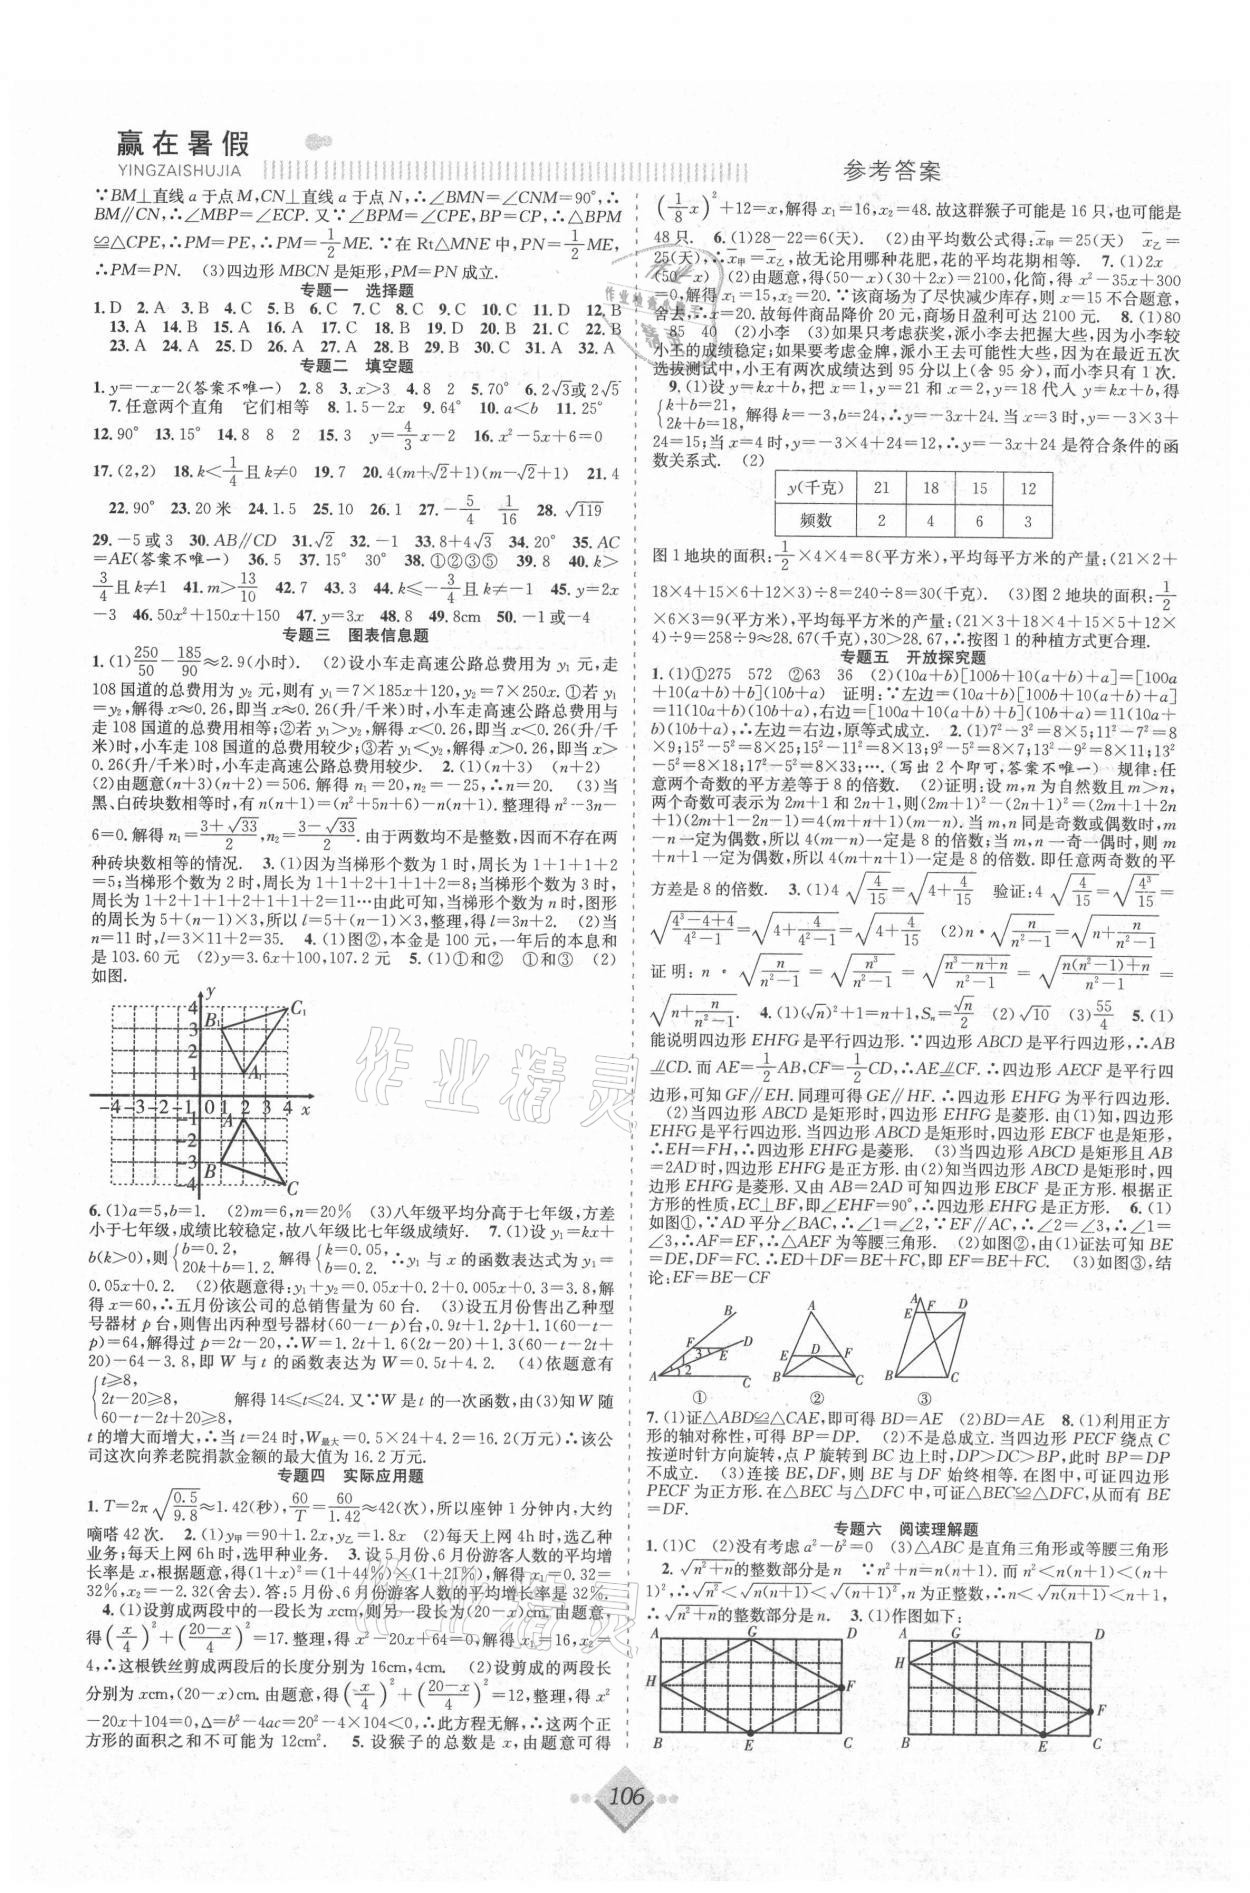 赢在暑假
YINGZAISHUJIA
参考答案
∵BM⊥直线a于点M,CN⊥直线a于点N,∴∠BMN=∠CNM=90°,∴
BM∥CN,∴∠MBP=∠ECP.又∵∠BPM=∠CPE,BP=CP,∴△BPM
≌△CPE,∴PM=PE,∴PM=1/2 ME.∵在Rt△MNE中,PN=1/2 ME,
∴PM=PN. (3)四边形MBCN是矩形,PM=PN成立.
专题一 选择题
1.D 2.A 3.B 4.C 5.B 6.C 7.C 8.C 9.C 10.D 11.D 12.B
13.A 14.B 15.A 16.A 17.C 18.C 19.A 20.D 21.C 22.B
23.A 24.A 25.D 26.A 27.A 28.B 29.B 30.C 31.A 32.A
专题二 填空题
1.y=-x-2(答案不唯一) 2.8 3.x>3 4.8 2 5.70° 6.2√3或2√5
7.任意两个直角 它们相等 8.1.5-2x 9.64° 10.a<b 11.25°
12.90° 13.15° 14.8 8 2 15.3 y=4/3 x-2 16.x²-5x+6=0
17.(2,2) 18.k<1/4且k≠0 19.7 20.4(m+√2+1)(m-√2+1) 21.4
22.90° 23.20米 24.1.5 25.10 26.1 27.-5/4 1/16 28.√119
29.-5或3 30.AB∥CD 31.√2 32.-1 33.8+4√3 34.20° 35.AC
=AE(答案不唯一) 36.5 37.15° 30° 38.①②③⑤ 39.8 40.k>
3/4且k≠1 41.m>13/10 42.7 43.3 44.k≤-3/4且k≠0 45.y=2x
-3 46.50x²+150x+150 47.y=3x 48.8 49.8cm 50.-1或-4
专题三 图表信息题
1.(1)250/50-185/90≈2.9(小时). (2)设小车走高速公路总费用为y₁元,走
108国道的总费用为y₂元,则有y₁=7×185x+120,y₂=7×250x.①若y₁
=y₂,解得x≈0.26,即当x≈0.26(升/千米)时,小车走高速公路总费用与
走108国道的总费用相等;②若y₁>y₂,解得x<0.26,即当x<0.26(升/千
米)时,小车走108国道的总费用较少;③若y₁<y₂,解得x>0.26,即当x>
0.26(升/千米)时,小车走高速公路总费用较少. 2.(1)(n+3) (n+2)
(2)由题意(n+3)(n+2)=506.解得n₁=20,n₂=-25,∴n=20. (3)当
黑、白砖块数相等时,有n(n+1)=(n²+5n+6)-n(n+1).整理得n²-3n-
6=0.解得n₁=(3+√33)/2,n₂=(3-√33)/2.由于两数均不是整数,因而不存在两
种砖块数相等的情况. 3.(1)因为当梯形个数为1时,周长为1+1+1+2
=5;当梯形个数为2时,周长为1+1+2+1+1+2=8;当梯形个数为3时,
周长为1+2+1+1+2+1+1+2=11…由此可知,当梯形个数为n时,图形
的周长为5+(n-1)×3,所以l=5+(n-1)×3,整理,得l=3n+2. (2)当
n=11时,l=3×11+2=35. 4.(1)图②,本金是100元,一年后的本息和
是103.60元 (2)y=3.6x+100,107.2元 5.(1)①和② ①和③ (2)
如图.
y
4
3
2
1
B₁
C₁
A₁
-4-3-2-1 0 1 2 3 4 x
-1
-2
-3
-4
A
B
C
6.(1)a=5,b=1. (2)m=6,n=20% (3)八年级平均分高于七年级,方差
小于七年级,成绩比较稳定,故八年级比七年级成绩好. 7.(1)设y₁=kx+
b(k>0),则{b=0.2, 20k+b=1.2. 解得{k=0.05, b=0.2. ∴y₁与x的函数表达式为y₁=
0.05x+0.2. (2)依题意得:y₁+y₂=0.05x+0.2+0.005x+0.3=3.8,解
得x=60,∴五月份该公司的总销售量为60台. (3)设五月份售出乙种型
号器材p台,则售出丙种型号器材(60-t-p)台,0.9t+1.2p+1.1(60-t-
p)=64,解得过p=2t-20,∴W=1.2t+1.6(2t-20)+1.3(60-t-2t+
20)-64-3.8,即W与t的函数表达为W=0.5t+4.2. (4)依题意有
{t≥8, 2t-20≥8, 60-t-2t+20≥8, 解得14≤t≤24.又∵W是t的一次函数,由(3)知W随
t的增大而增大,∴当t=24时,W最大=0.5×24+4.2=16.2(万元)∴该公
司这次向养老院捐款金额的最大值为16.2万元.
专题四 实际应用题
1.T=2π√(0.5/9.8)≈1.42(秒),60/T=60/1.42≈42(次),所以座钟1分钟内,大约
嘀嗒42次. 2.(1)y甲=90+1.2x,y乙=1.8x (2)每天上网4h时,选乙种
业务;每天上网6h时,选甲种业务. 3.设5月份、6月份游客人数的平均增
长率是x,根据题意,得(1+x)²=(1+44%)×(1+21%),解得x₁=0.32=
32%,x₂=-2.32(舍去).答:5月份、6月份游客人数的平均增长率是32%.
4.(1)设剪成两段中的一段长为xcm,则另一段长为(20-x)cm.由题意,
得(x/4)²+((20-x)/4)²=17.整理,得x²-20x+64=0,解得x₁=16,x₂=
4,∴这根铁丝剪成两段后的长度分别为16cm,4cm. (2)设剪成的两段长
分别为xcm,(20-x)cm.由题意,得(x/4)²+((20-x)/4)²=12,整理,得x²
-20x+104=0,Δ=b²-4ac=20²-4×104<0,∴此方程无解,∴这两个正
方形的面积之和不可能为12cm². 5.设猴子的总数是x,由题意可得
(1/8 x)²+12=x,解得x₁=16,x₂=48.故这群猴子可能是16只,也可能是
48只. 6.(1)28-22=6(天). (2)由平均数公式得:x̄甲=25(天) x̄乙=
25(天),∴x̄甲=x̄乙,故无论用哪种花肥,花的平均花期相等. 7.(1)2x
(50-x) (2)由题意,得(50-x)(30+2x)=2100,化简,得x²-35x+300
=0,解得x₁=15,x₂=20.∵该商场为了尽快减少库存,则x=15不合题意,
舍去,∴x=20.故每件商品降价20元,商场日盈利可达2100元. 8.(1)80
85 40 (2)小李 (3)如果只考虑获奖,派小李去把握大些,因为小李较
小王的成绩稳定;如果要考虑金牌,派小王去可能性大些,因为在最近五次
选拔测试中,小王有两次成绩达到95分以上(含95分),而小李只有1次.
9.(1)设y=kx+b,把x=1,y=21和x=2,y=18代人y=kx+b,得
{k+b=21, 2k+b=18, 解得k=-3,b=24,∴y=-3x+24.当x=3时,y=-3×3+
24=15;当x=4时,y=-3×4+24=12,∴y=-3x+24是符合条件的函
数关系式. (2)
y(千克) 21 18 15 12
频数 2 4 6 3
图1地块的面积:1/2×4×4=8(平方米),平均每平方米的产量:(21×2+
18×4+15×6+12×3)÷8=240÷8=30(千克). (3)图2地块的面积:1/2
×6×3=9(平方米),平均每平方米的产量:(21×3+18×4+15×5+12×
4)÷9=258÷9≈28.67(千克),30>28.67,∴按图1的种植方式更合理.
专题五 开放探究题
1.(1)①275 572 ②63 36 (2)(10a+b)[100b+10(a+b)+a]=[100a
+10(a+b)+b](10b+a) 证明:∵左边=(10a+b)[100b+10(a+b)+a]
=11(10a+b)(10b+a),右边=[100a+10(a+b)+b](10b+a)=11(10a+
b)(10b+a),∴左边=右边,原等式成立. 2.(1)7²-3²=8×5;11²-7²=8
×9;15²-5²=8×25;15²-11²=8×13;9²-5²=8×7;13²-9²=8×11;13²
-5²=8×18;17²-5²=8×33;….(写出2个即可,答案不唯一) 规律:任
意两个奇数的平方差等于8的倍数. (2)证明:设m,n为自然数且m>n,
两个奇数可表示为2m+1和2n+1,则(2m+1)²-(2n+1)²=(2m+1+2n
+1)(2m+1-2n-1)=4(m+n+1)(m-n).当m,n同是奇数或偶数时,m
-n一定为偶数,所以4(m-n)一定是8的倍数;当m,n一奇一偶时,则m
+n+1一定为偶数,所以4(m+n+1)一定是8的倍数.即任意两奇数的平
方差是8的倍数. 3.(1)4√(4/15)=√(4+4/15) 验证:4√(4/15)=√(4³/15)=
√((4³-4+4)/(4²-1))=√(4+4/(4²-1))=√(4+4/15) (2)n·√(n/(n²-1))=√(n+n/(n²-1))
证明:n·√(n/(n²-1))=√(n³/(n²-1))=√((n³-n+n)/(n²-1))=√((n(n²-1)+n)/(n²-1))=
√(n+n/(n²-1)). 4.(1)(√n)²+1=n+1,Sₙ=√n/2 (2)√10 (3)55/4 5.(1)
能说明四边形EHFG是平行四边形.∵四边形ABCD是平行四边形,∴AB
∥CD.而AE=1/2 AB,CF=1/2 CD,∴AE∥CF.∴四边形AECF是平行四
边形,可知GF∥EH.同理可得GE∥HF.∴四边形EHFG为平行四边形.
(2)当四边形ABCD是矩形时,四边形EHFG是菱形.由(1)知,四边形
EHFG是平行四边形.当四边形ABCD是矩形时,四边形EBCF也是矩形.
∴EH=FH,∴四边形EHFG是菱形. (3)当四边形ABCD是矩形且AB
=2AD时,四边形EHFG是正方形.由(2)知当四边形ABCD是矩形时,四
边形EHFG是菱形.又由AB=2AD可知四边形EBCF是正方形.根据正
方形的性质,EC⊥BF,即∠EHF=90°,∴四边形EHFG是正方形. 6.(1)
如图①,∵AD平分∠BAC,∴∠1=∠2,∵EF∥AC,∴∠2=∠3,∴∠1=
∠3,∴AF=EF,∴△AEF为等腰三角形. (2)如图②,由(1)证法可知BE
=DE,DF=FC.∴ED+DF=BE+FC,即EF=BE+FC. (3)如图③,结
论:EF=BE-CF
B D F 3 E 1 2 A C
①
A E D F B C
②
A E F D B C
③
7.(1)证△ABD≌△CAE,即可得BD=AE (2)BD=AE 8.(1)利用正方
形的轴对称性,可得BP=DP. (2)不是总成立.当四边形PECF绕点C
按逆时针方向旋转,点P旋转到BC边上时,DP>DC>BP,此时BP=DP
不成立. (3)连接BE,DF,则BE与DF始终相等.在图中,可证四边形
PECF为正方形.在△BEC与△DFC中,可证△BEC≌△DFC,从而有BE
=DF.
专题六 阅读理解题
1.(1)C (2)没有考虑a²-b²=0 (3)△ABC是直角三角形或等腰三角形
2.√(n²+n)的整数部分是n ∵√(n²+n)=√(n(n+1)).而n²<n(n+1)<(n+
1)²,∴√n²<√(n(n+1))<√((n+1)²),n为正整数,∴n<√(n(n+1))<n+1,
∴√(n²+n)的整数部分是n. 3.(1)作图如下:
A G D H F B E C
A G D H F B E C
作业精灵
106